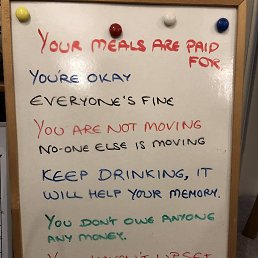 YOUR MEALS ARE PAID
FOR
YOU'RE OKAY
EVERYONE'S FINE
YOU ARE NOT MOVING
NO-ONE ELSE IS MOVING
KEEP DRINKING, IT
WILL HELP YOUR MEMORY.
YOU DON'T OWE ANYONE
ANY MONEY.
YOU HAVEN'T UPSET